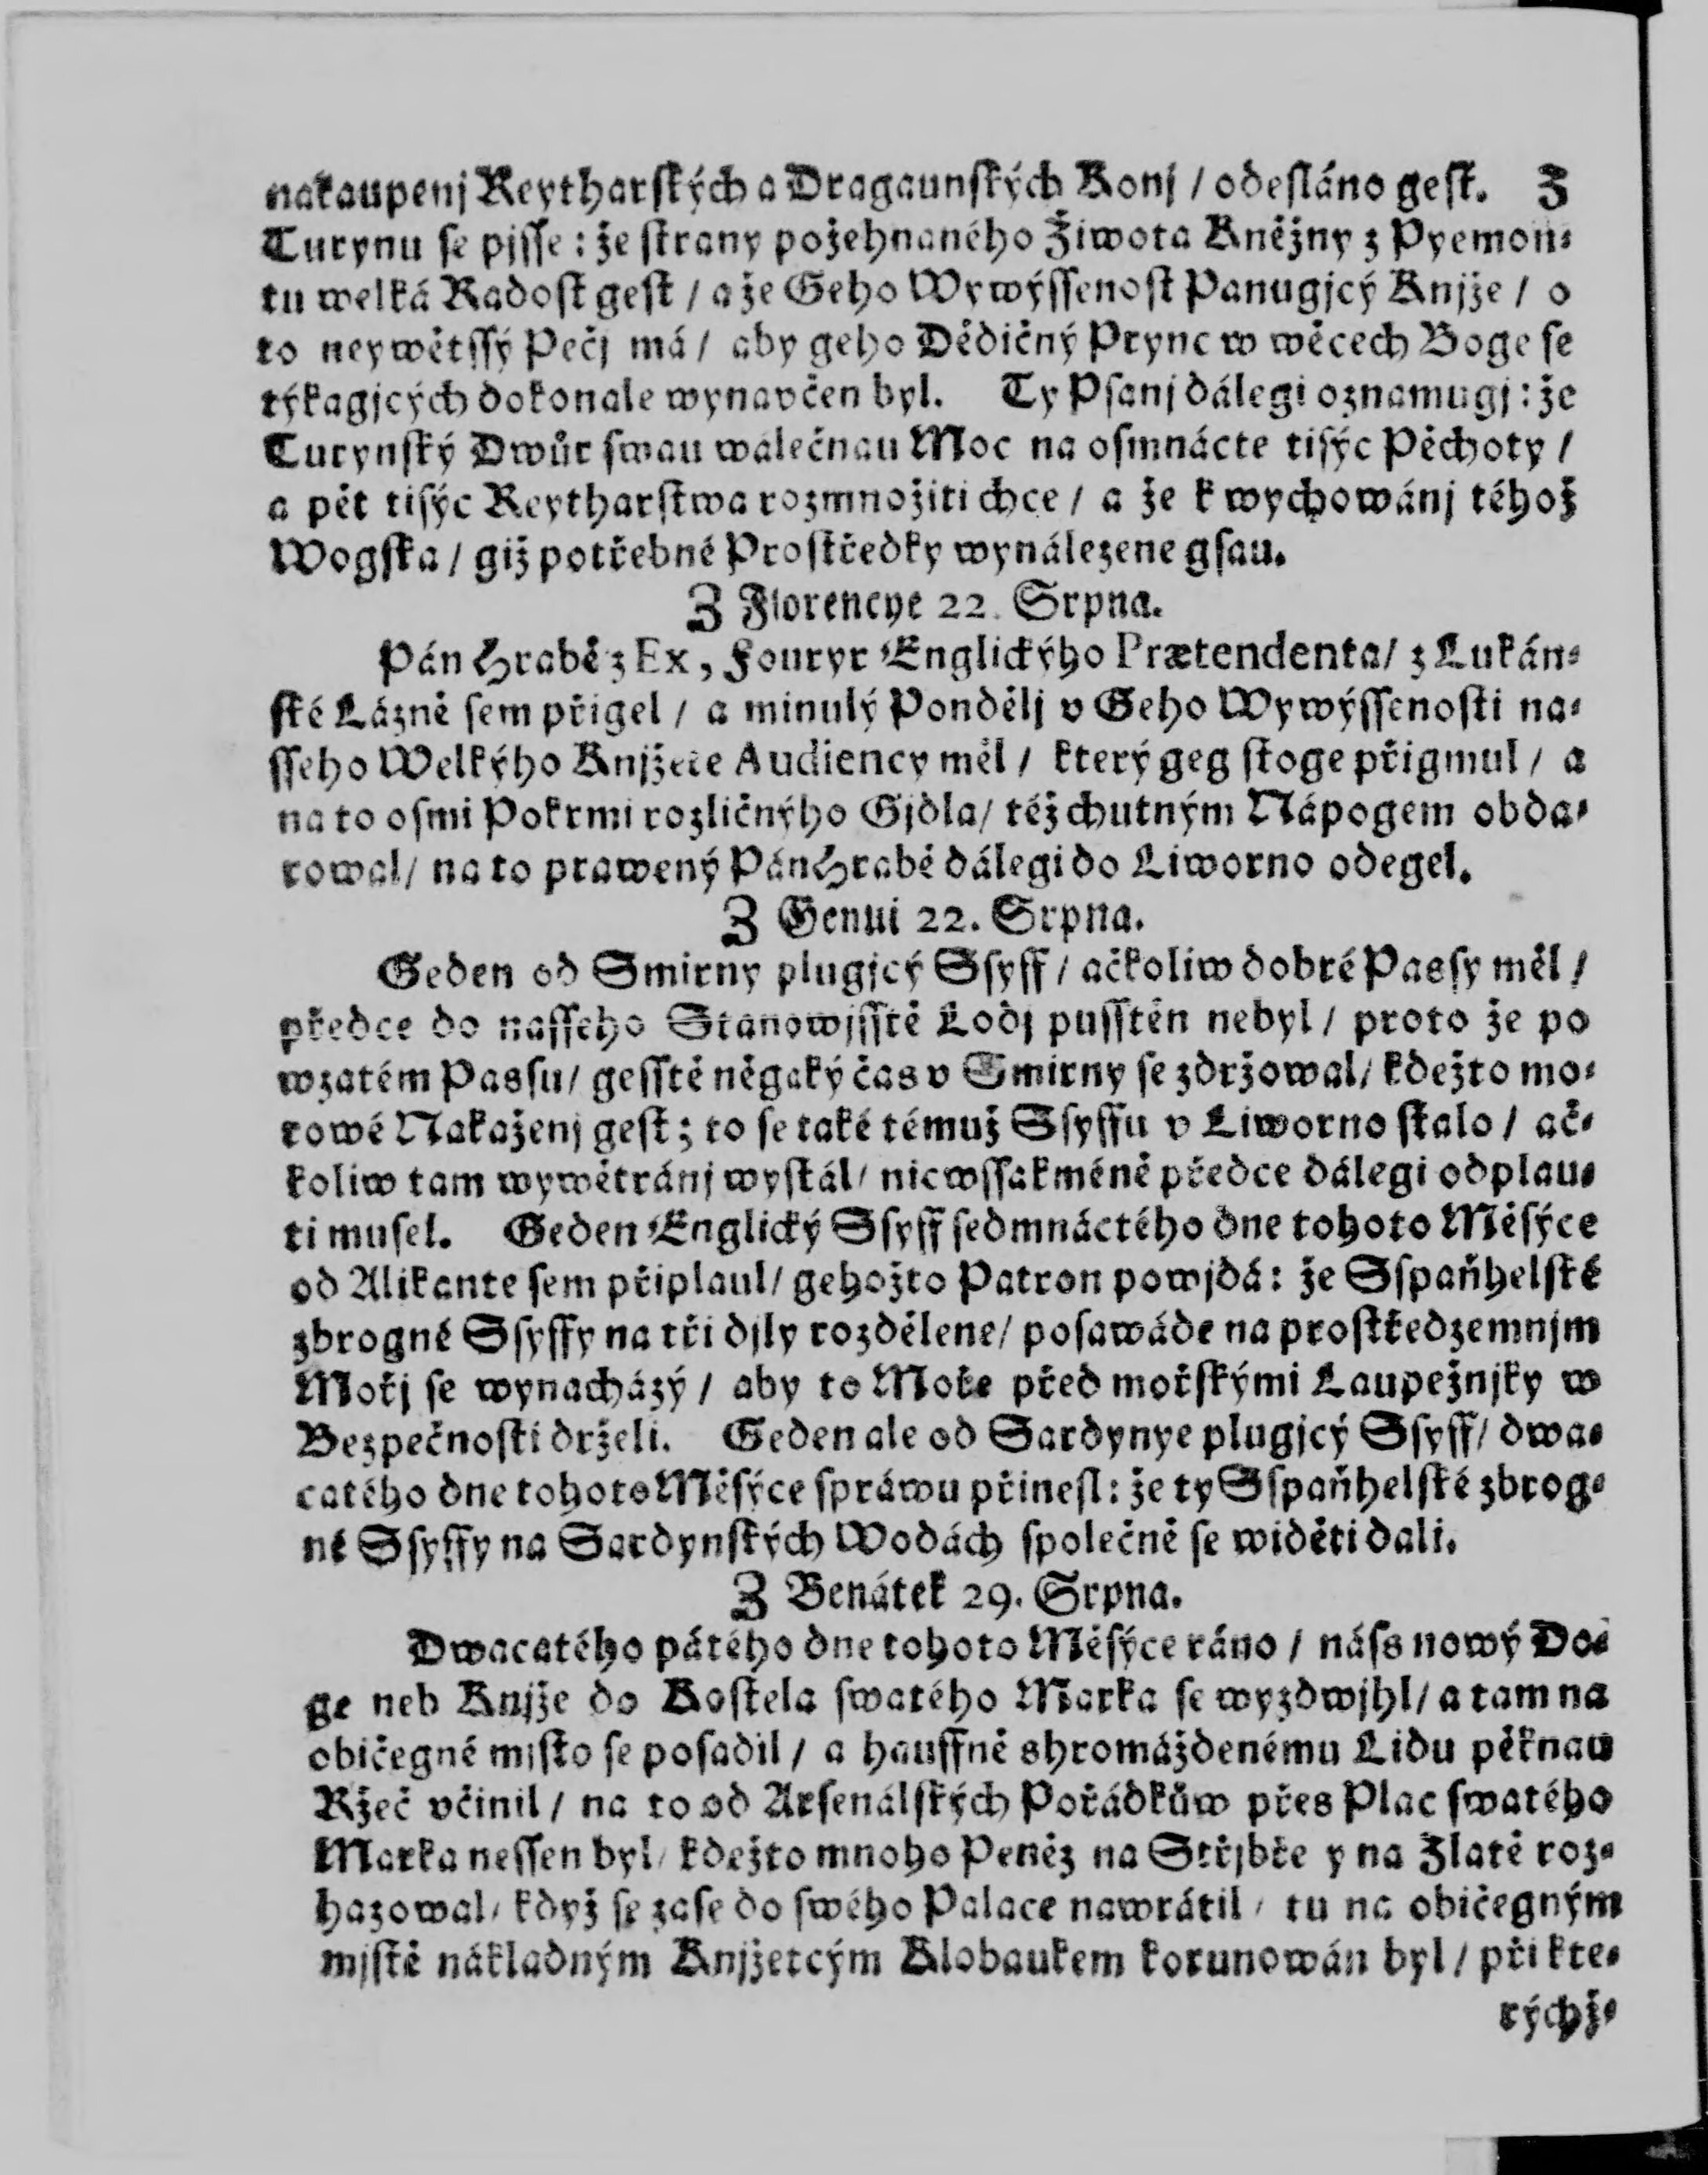 nakaupenj Reytharſkých a Dragaunſkých Konj / odeſláno geſt. Z
Turynu ſe pjſſe : že ſtrany požehnaného Žiwota Kněžny z Pyemon⸗
tu welká Radoſt geſt / a že Geho Wywýſſenoſt Panugjcý Knjže / o
to neywětſſý Pečj má / aby geho Dědičný Prync w wěcech Boge ſe
týkagjcých dokonale wynavčen byl. Ty Pſanj dálegi oznamugj : že
Turynſký Dwůr ſwau wálečnau Moc na oſmnácte tiſýc Pěchoty /
a pět tiſýc Reytharſtwa rozmnožiti chce / a že k wychowánj téhož
Wogſka / giž potřebné Proſtředky wynálezene gſau.
Z Florencye 22. Srpna.
Pán Hrabě z Ex, Fouryr Englickýho Prætendenta / z Lukán⸗
ſké Lázně ſem přigel / a minulý Pondělj v Geho Wywýſſenoſti na⸗
ſſeho Welkýho Knjžete Audiency měl / který geg ſtoge přigmul / a
na to oſmi Pokrmi rozličnýho Gjdla / též chutným Nápogem obda⸗
rowal / na to prawený Pán Hrabě dálegi do Liworno odegel.
Z Genui 22. Srpna.
Geden od Smirny plugjcý Sſyff / ačkoliw dobré Paſſy měl /
předce do naſſeho Stanowjſſtě Lodj puſſtěn nebyl / proto že po
wzatém Paſſu / geſſtě něgaký čas v Smirny ſe zdržowal / kdežto mo⸗
rowé Nakaženj geſt ; to ſe také témuž Sſyffu v Liworno ſtalo / ač⸗
koliw tam wywětránj wyſtál / nicwſſakméně předce dálegi odplau⸗
ti muſel. Geden Englický Sſyff ſedmnáctého dne tohoto Měſýce
od Alikante ſem připlaul / gehožto Patron powjdá : že Sſpaňhelſké
zbrogné Sſyffy na tři djly rozdělene / poſawáde na proſtředzemnjm
Mořj ſe wynacházý / aby to Moře před mořſkými Laupežnjky w
Bezpečnoſti drželi. Geden ale od Sardynye plugjcý Sſyff / dwa⸗
catého dne tohoto Měſýce ſpráwu přineſl : že ty Sſpaňhelſké zbrog⸗
né Sſyffy na Sardynſkých Wodách ſpolečně ſe widěti dali.
Z Benátek 29. Srpna.
Dwacatého pátého dne tohoto Měſýce ráno / náſs nowý Do⸗
ge neb Knjže do Koſtela ſwatého Marka ſe wyzdwjhl / a tam na
običegné mjſto ſe poſadil / a hauffně shromážděnému Lidu pěknau
Ržeč včinil / na to od Arſenálſkých Pořádkůw přes Plac ſwatého
Marka neſſen byl / kdežto mnoho Peněz na Střjbře y na Zlatě roz⸗
hazowal / když ſe zaſe do ſwého Palace nawrátil / tu na običegným
mjſtě nákladným Knjžetcým Klobaukem korunowán byl / při kte⸗
rýchž⸗